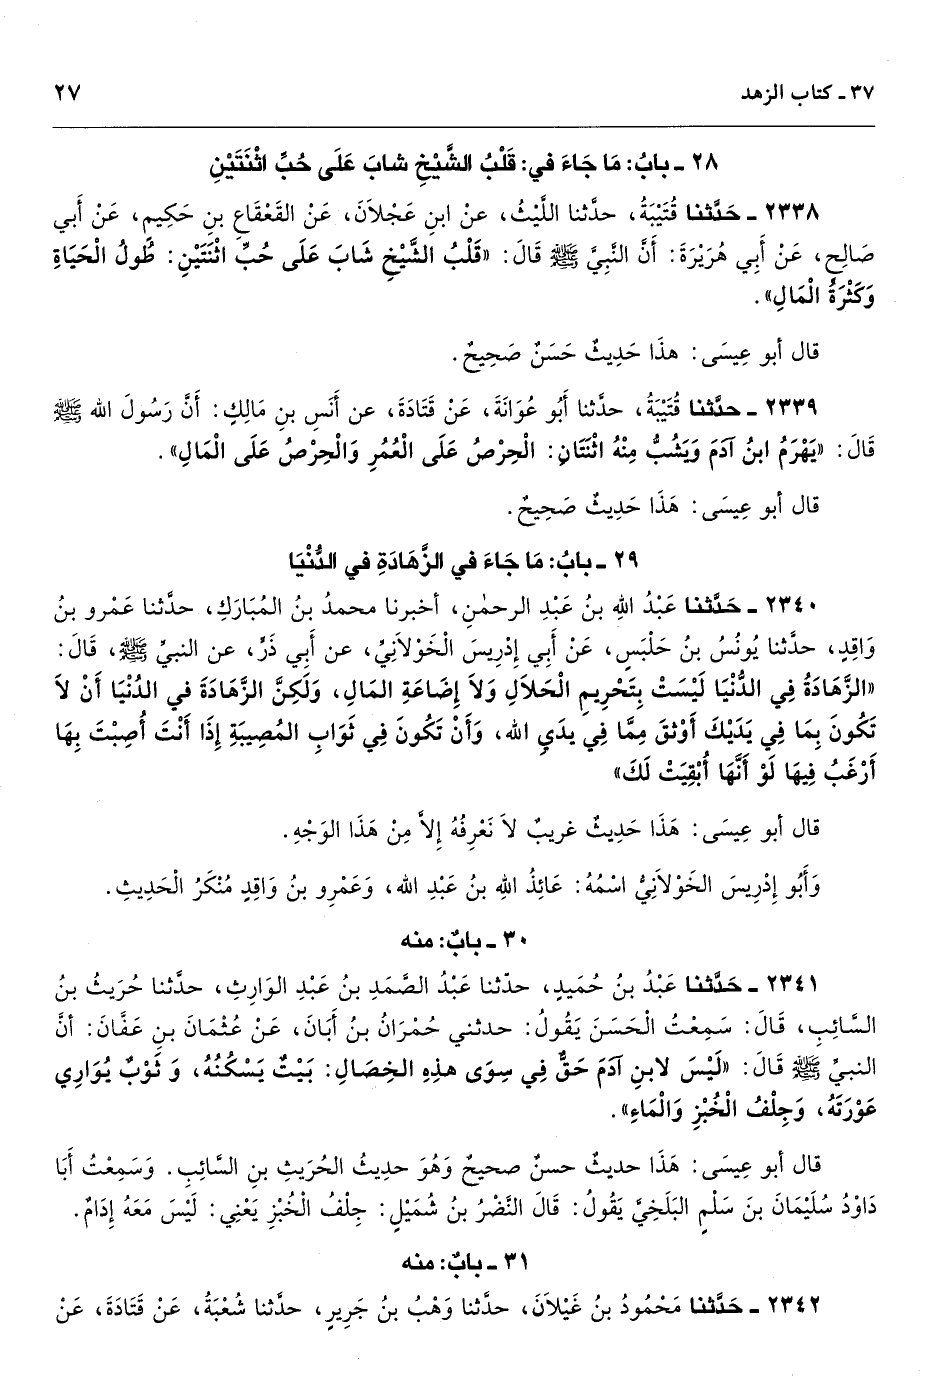 ٣٧ ـ كتاب الزهد ٢٧
٢٨ ـ بابُ: مَا جَاءَ في: قَلْبُ الشَّيْخِ شابَ عَلَى حُبِّ اثْنَتَيْنِ
٢٣٣٨ ـ حَدَّثَنا قُتَيْبَةُ، حدَّثنا اللَّيْثُ، عنِ ابنِ عَجْلاَنَ، عَنْ القَعْقَاعِ بنِ حَكِيمٍ، عَنْ أَبي
صَالِحٍ، عَنْ أَبِي هُرَيْرَةَ: أَنَّ النَّبِيَّ ﷺ قَالَ: «قَلْبُ الشَّيْخِ شَابَ عَلَى حُبِّ اثْنَتَيْنِ: طُولُ الْحَيَاةِ
وَكَثْرَةُ الْمَالِ».
قال أبو عِيسَى: هذَا حَدِيثٌ حَسَنٌ صَحِيحٌ.
٢٣٣٩ ـ حدَّثنا قُتَيْبَةُ، حدَّثنا أَبُو عُوَانَةَ، عَنْ قَتَادَةَ، عن أَنَسِ بنِ مَالِكٍ: أَنَّ رَسُولَ الله ﷺ
قَالَ: «يَهْرَمُ ابنُ آدَمَ وَيَشُبُّ مِنْهُ اثْنَتَانِ: الْحِرْصُ عَلَى الْعُمُرِ وَالْحِرْصُ عَلَى الْمَالِ».
قال أبو عِيسَى: هَذَا حَدِيثٌ صَحِيحٌ.
٢٩ ـ بابُ: مَا جَاءَ في الزَّهَادَةِ في الدُّنْيَا
٢٣٤٠ ـ حَدَّثَنا عَبْدُ اللهِ بنُ عَبْدِ الرحمٰنِ، أخبرنا محمدُ بنُ المُبَارَكِ، حدَّثنا عَمْرو بنُ
وَاقِدٍ، حدَّثنا يُونُسُ بنُ حَلْبَسٍ، عَنْ أَبِي إدْرِيسَ الْخَوْلاَنِيِّ، عن أَبِي ذَرٍّ، عن النبيِّ ﷺ، قَالَ:
«الزَّهَادَةُ فِي الدُّنْيَا لَيْسَتْ بِتَحْرِيمِ الْحَلاَلِ وَلاَ إِضَاعَةِ المَالِ، وَلَكِنَّ الزَّهَادَةَ في الدُنْيَا أَنْ لاَ
تَكُونَ بِمَا فِي يَدَيْكَ أَوْثَقَ مِمَّا فِي يدَيِ الله، وَأَنْ تَكُونَ فِي ثَوَابِ المُصِيبَةِ إِذَا أَنْتَ أُصِبْتَ بِهَا
أَرْغَبُ فِيهَا لَوْ أَنَّهَا أُبْقِيَتْ لَكَ»
قال أبو عِيسَى: هَذَا حَدِيثٌ غريبٌ لاَ نَعْرِفُهُ إلاَّ مِنْ هَذَا الوَجْهِ.
وَأَبُو إدْرِيسَ الخَوْلاَنِيُّ اسْمُهُ: عَائِذُ اللهِ بنُ عَبْدِ الله، وَعَمْرِو بنُ وَاقِدٍ مُنْكَرُ الْحَدِيثِ.
٣٠ ـ بابٌ: منه
٢٣٤١ ـ حَدَّثَنا عَبْدُ بنُ حُمَيدٍ، حدّثنا عَبْدُ الصَّمَدِ بنُ عَبْدِ الوَارِثِ، حدَّثنا حُرَيثُ بنُ
السَّائِبِ، قَالَ: سَمِعْتُ الْحَسَنَ يَقُولُ: حدثني حُمْرَانُ بنُ أَبَانَ، عَنْ عُثْمَانَ بنِ عَفَّانَ: أنَّ
النبيِّ ﷺ قَالَ: «لَيْسَ لابنِ آدَمَ حَقٌّ فِي سِوَى هذِهِ الخِصَالِ: بَيْتٌ يَسْكُنُهُ، وَثَوْبٌ يُوَارِي
عَوْرَتَهُ، وَجِلْفُ الْخُبْزِ وَالْمَاءِ».
قال أبو عِيسَى: هَذَا حديثٌ حسنٌ صحيحٌ وَهُوَ حديثُ الحُرَيثِ بنِ السَّائِبِ. وَسَمِعْتُ أَبَا
دَاوُدَ سُلَيْمَانَ بنَ سَلْمٍ البَلْخِيَّ يَقُولُ: قَالَ النَّضْرُ بنُ شُمَيْلٍ: جِلْفُ الْخُبْزِ يَعْنِي: لَيْسَ مَعَهُ إدَامٌ.
٣١ ـ بابٌ: منه
٢٣٤٢ ـ حَدَّثَنا مَحْمُودُ بنُ غَيْلاَنَ، حدَّثنا وَهْبُ بنُ جَرِيرٍ، حدَّثنا شُعْبَةُ، عَنْ قَتَادَةَ، عَنْ